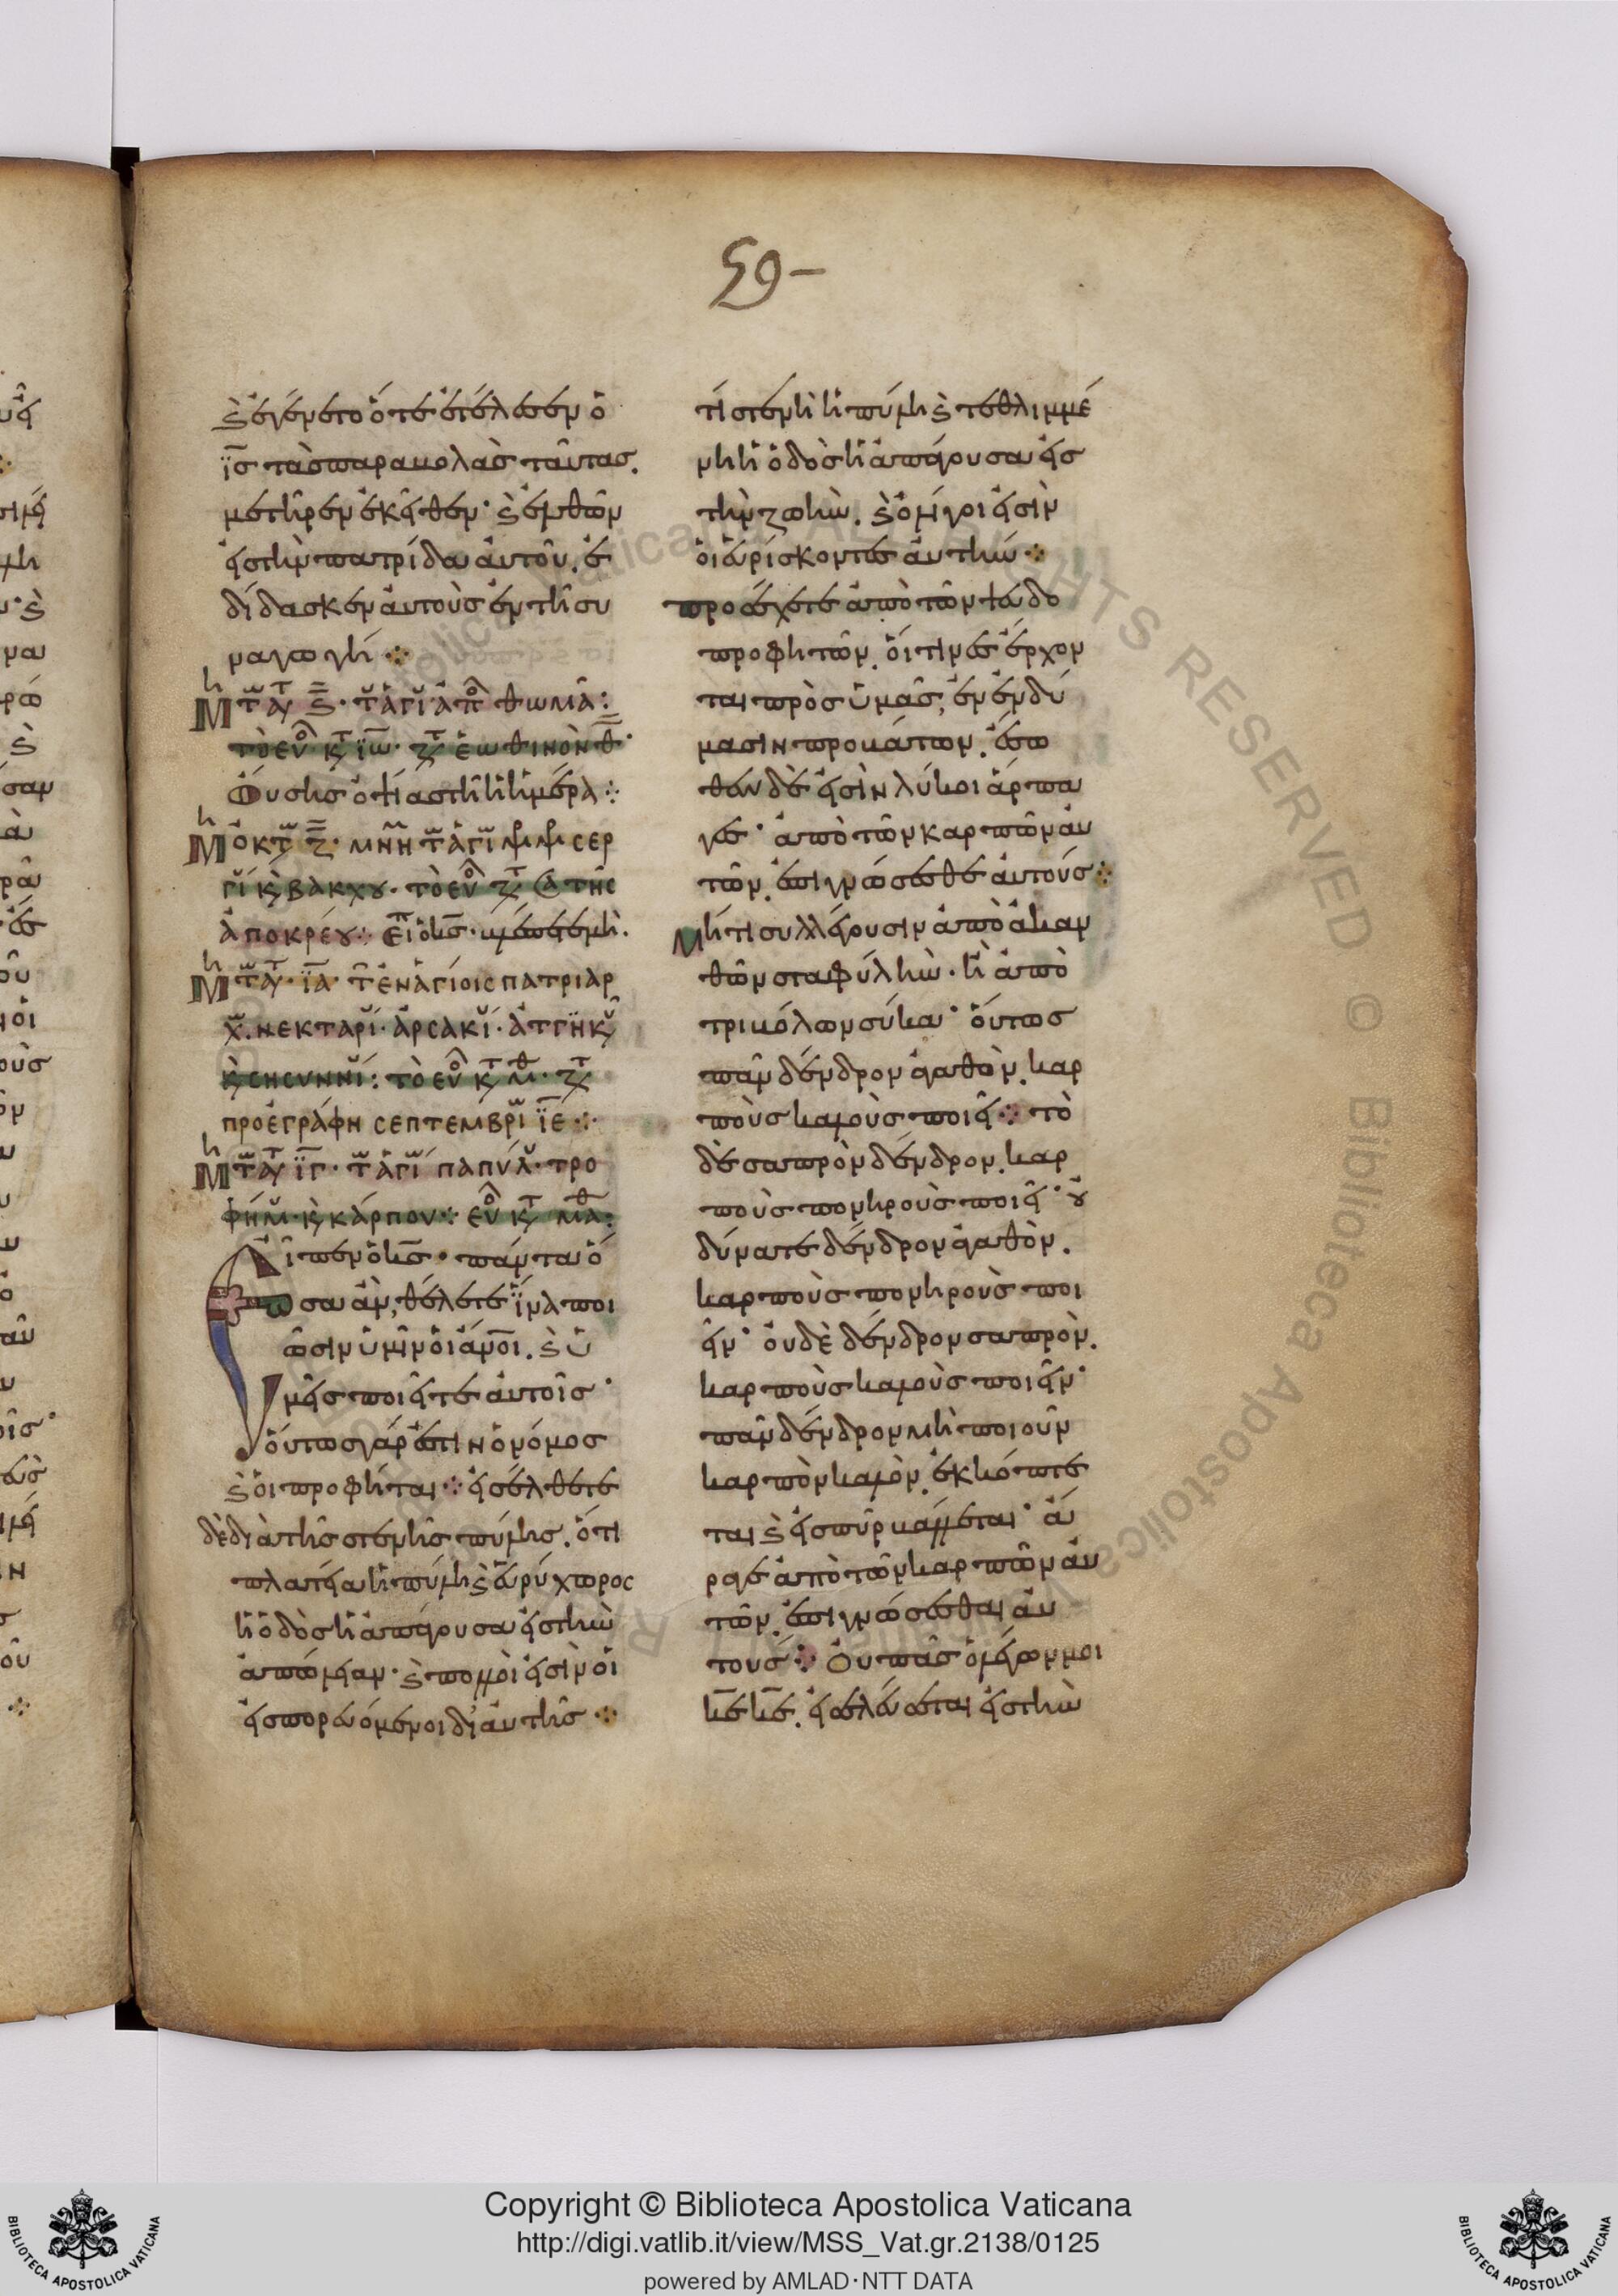 59-
ϗ ἐγένετο ὅτε ἐτέλεσεν ὁ
ι̅ς̅ τὰς παραβολὰς ταύτας.
μετῆρεν ἐκεῖθεν· ϗ ἐλθὼν
εἰς τὴν πατρίδα αὐτοῦ. ἐ
δίδασκεν αὐτοὺς ἐν τῇ συ
ναγωγῇ
τὸ εὐ κτ ϊω ζτ ἑωθινὸν θ
Οὔσης ὀψίας τῇ ἡμέρα
Μ ὀκτ ζ μνήμη τ ἁγί μμ σερ
γί ϗ βάκχου. τὸ εὐ ζτ τῆς
ἀποκρέου
ϊα τ ἐν ἁγίοις πατριαρ
χ. νεκταρί· ἀρσακί· ἀττικ
ϗ σησυννί: τὸ εὐ κτ μ ζτ
προεγράφη σεπτεμβρί ϊε
ϊγ τ ἁγί παπύλ· τρο
φήμ ϗ κάρπου· εὐ κτ μθ
Εἶπεν ὁ κ̅ς̅· πάντα ὅ
σα ἂν θέλετε ἵνα ποι
ῶσιν ὑμῖν οἱ ἄν̅ο̅ι. ϗ ὑ
μεῖς ποιεῖτε αὐτοῖς·
οὕτως γάρ ἐστιν ὁ νόμος
ϗ οἱ προφῆται εἰσέλθετε
δὲ διὰ τῆς στενῆς πύλης. ὅτι
πλατεῖα ἡ πύλη ϗ εὐρύχωρος
ἡ ὁδὸς ἡ ἀπάγουσα εἰς τὴν
ἀπώλειαν· ϗ πολλοὶ εἰσὶν οἱ
εἰσπορευόμενοι δι' αὐτῆς
τί στενὴ ἡ πύλη ϗ τεθλιμμέ
νη ἡ ὁδὸς ἡ ἀπάγουσα εἰς
τὴν ζωήν. ϗ ὀλίγοι εἰσὶν
οἱ εὑρίσκοντες αὐτήν
προσέχετε ἀπὸ τῶν ψευδο
προφητῶν. οἵτινες ἔρχον
ται πρὸς ὑμᾶς, ἐν ἐνδύ
μασιν προβάτων. ἔσω
θεν δὲ εἰσὶν λύκοι ἅρπα
γες· ἀπὸ τῶν καρπῶν αὐ
τῶν. ἐπιγνώσεσθε αὐτούς
Μήτι συλλέγουσιν ἀπὸ ἀκαν
θῶν σταφύλην· ἢ ἀπὸ
τριβόλων σύκα· οὕτως
πᾶν δένδρον ἀγαθὸν. καρ
ποὺς καλοὺς ποιεῖ τὸ
δὲ σαπρὸν δένδρον. καρ
ποὺς πονηροὺς ποιεῖ· οὐ
δύναται δένδρον ἀγαθὸν.
καρποὺς πονηροὺς ποι
εῖν· οὐδὲ δένδρον σαπρὸν.
καρποὺς καλοὺς ποιεῖν·
πᾶν δένδρον μὴ ποιοῦν
καρπὸν καλὸν. ἐκκόπτε
ται ϗ εἰς πῦρ βάλλεται· ἄ
ραγε ἀπὸ τῶν καρπῶν αὐ
τῶν. ἐπιγνώσεσθαι αὐ
τούς Οὐ πᾶς ὁ λέγων μοι
κ̅ε̅ κ̅ε̅. εἰσελεύσεται εἰς τὴν
Copyright © Biblioteca Apostolica Vaticana
http://digi.vatlib.it/view/MSS_Vat.gr.2138/0125
powered by AMLAD·NTT DATA
BIBLIOTECA APOSTOLICA VATICANA
BIBLIOTECA APOSTOLICA VATICANA